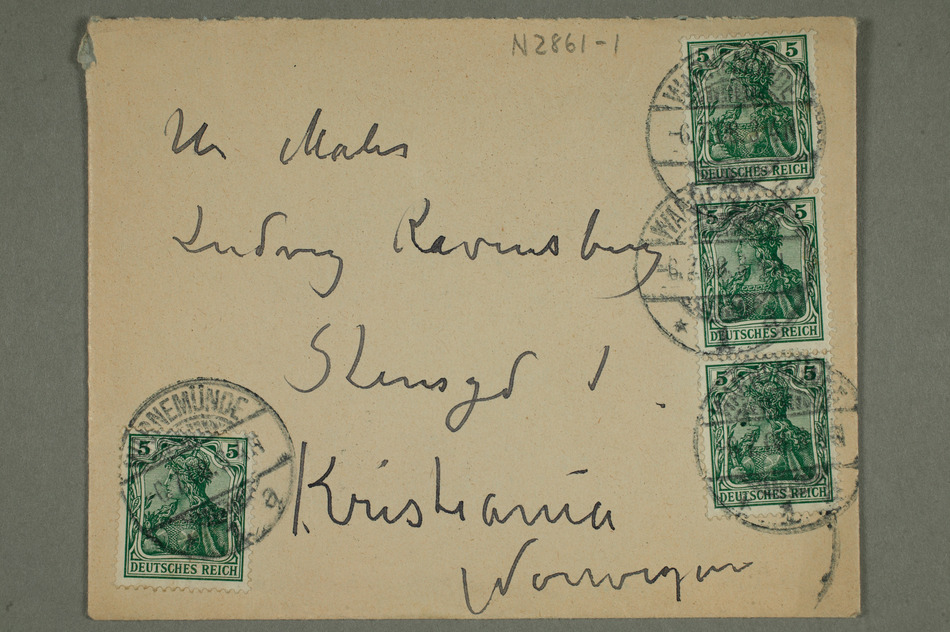 N2861-1
5 5
DEUTSCHES REICH
Hr Maler
Ludvig Ravensberg
5 5
DEUTSCHES REICH
Stensgd 1.
5 5
DEUTSCHES REICH
WARNEMÜNDE
5 5
DEUTSCHES REICH
Kristiania
Norwegen